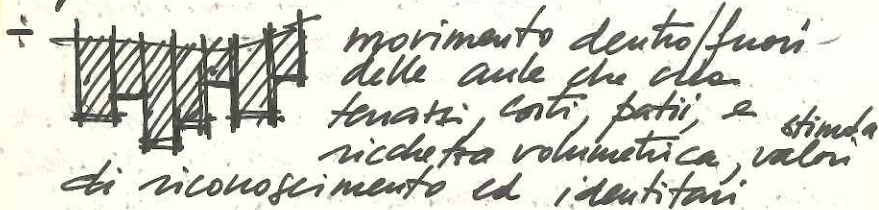 ÷ movimento dentro/fuori
delle aule che crea
terrazzi, corti, patii, e
stimola
ricchezza volumetrica, valori
di riconoscimento ed identitari